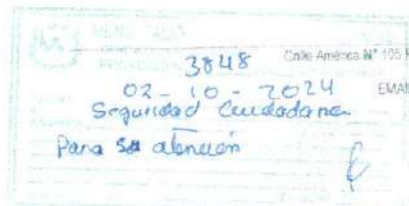 3848
Calle América Nº 105
02 - 10 - 2024
EMAI
Seguridad Ciudadana
Para su atención